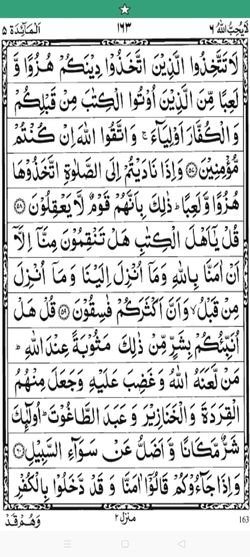 لَايُحِبُّ اللّٰهُ ٦
١٦٣
اَلْمَآئِدَة ٥
لَا تَتَّخِذُوا الَّذِيْنَ اتَّخَذُوْا دِيْنَكُمْ هُزُوًا وَّ
لَعِبًا مِّنَ الَّذِيْنَ اُوْتُوا الْكِتٰبَ مِنْ قَبْلِكُمْ
وَ الْكُفَّارَ اَوْلِيَآءَ ۚ وَ اتَّقُوا اللّٰهَ اِنْ كُنْتُمْ
مُّؤْمِنِيْنَ ﴿٥٧﴾ وَ اِذَا نَادَيْتُمْ اِلَى الصَّلٰوةِ اتَّخَذُوْهَا
هُزُوًا وَّ لَعِبًا ؕ ذٰلِكَ بِاَنَّهُمْ قَوْمٌ لَّا يَعْقِلُوْنَ ﴿٥٨﴾
قُلْ يٰۤاَهْلَ الْكِتٰبِ هَلْ تَنْقِمُوْنَ مِنَّاۤ اِلَّاۤ
اَنْ اٰمَنَّا بِاللّٰهِ وَ مَاۤ اُنْزِلَ اِلَيْنَا وَ مَاۤ اُنْزِلَ
مِنْ قَبْلُ ۙ وَ اَنَّ اَكْثَرَكُمْ فٰسِقُوْنَ ﴿٥٩﴾ قُلْ هَلْ
اُنَبِّئُكُمْ بِشَرٍّ مِّنْ ذٰلِكَ مَثُوْبَةً عِنْدَ اللّٰهِ ؕ
مَنْ لَّعَنَهُ اللّٰهُ وَ غَضِبَ عَلَيْهِ وَ جَعَلَ مِنْهُمُ
الْقِرَدَةَ وَ الْخَنَازِيْرَ وَ عَبَدَ الطَّاغُوْتَ ؕ اُولٰٓئِكَ
شَرٌّ مَّكَانًا وَّ اَضَلُّ عَنْ سَوَآءِ السَّبِيْلِ ﴿٦٠﴾
وَ اِذَا جَآءُوْكُمْ قَالُوْۤا اٰمَنَّا وَ قَدْ دَّخَلُوْا بِالْكُفْرِ
وَ هُمْ قَدْ
منزل ٢
163